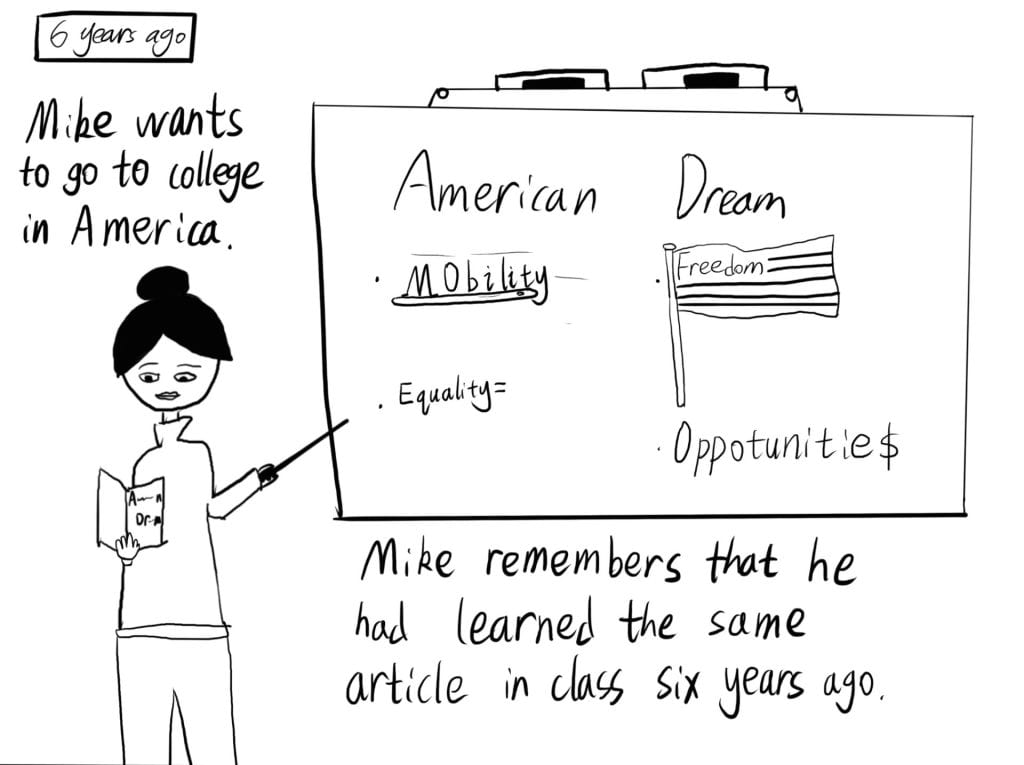 6 years ago
Mike wants
to go to college
in America.
American Dream
· MObility
· Freedom
. Equality=
· Oppotunitie$
Mike remembers that he
had learned the same
article in class six years ago.